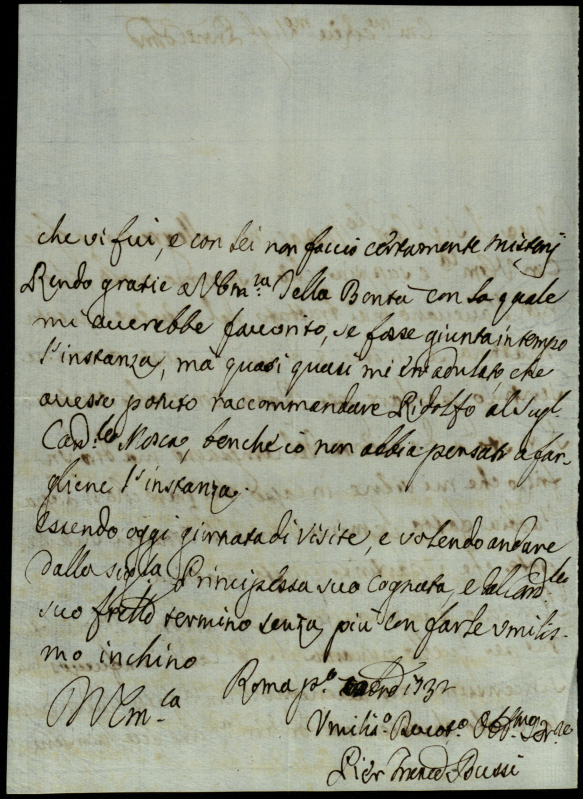 che vi fui, e con lei non faccio certamente misterj
Rendo gratie a V Em.za della Bontà con la quale
mi averebbe favorito, se fosse giunta in tempo
l'instanza, mà quasi quasi mi ero adulato, che
avesse potuto raccommandare Ridolfo al Sig.
Card.le Mosca, benche io non abbia pensato a far-
gliene l'instanza.
Essendo oggi giornata di visite, e volendo andare
dalla Sig.a Principessa sua Cognata, e dal Card.le
suo frello termino senza più con farle umilis-
mo inchino
Roma p.o 1732
V Em.za
Umilis.o Devot.o Obb.mo
Pier Franc.o Bussi